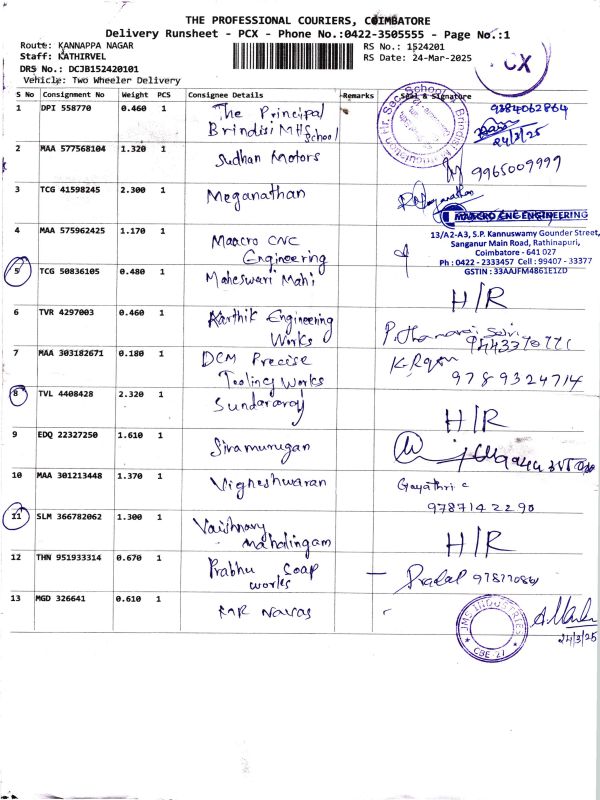 THE PROFESSIONAL COURIERS, COIMBATORE
Delivery Runsheet - PCX - Phone No.:0422-3505555 - Page No.:1
Route: KANNAPPA NAGAR
RS No.: 1524201
Staff: KATHIRVEL
RS Date: 24-Mar-2025
DRS No.: DCJB152420101
Vehicle: Two Wheeler Delivery
CX
S No Consignment No Weight PCS Consignee Details Remarks Seal & Signature
1 DPI 558770 0.460 1 The Principal
Brindisi MHSSchool
9384062864
24/3/25
2 MAA 577568104 1.320 1 Sudhan Motors
9965009999
3 TCG 41598245 2.300 1 Meganathan
MAACRO CNC ENGINEERING
13/A2-A3, S.P. Kannuswamy Gounder Street,
Sanganur Main Road, Rathinapuri,
Coimbatore - 641 027
Ph : 0422 - 2333457 Cell : 99407 - 33377
GSTIN : 33AAJFM4861E1ZD
4 MAA 575962425 1.170 1 Maacro CNC
Engineering
5 TCG 50836105 0.480 1 Maheswari Mahi
H/R
6 TVR 4297003 0.460 1 Karthik Engineering
Works
7 MAA 303182671 0.180 1 DCM Precise
Tooling Works
9789324714
8 TVL 4408428 2.320 1 Sundararaj
H/R
9 EDQ 22327250 1.610 1 Siramurugan
10 MAA 301213448 1.370 1 Vigneshwaran
Gayathri c
9787142290
11 SLM 366782062 1.300 1 Vaishnavy
Mahalingam
H/R
12 THN 951933314 0.670 1 Prabhu Soap
works
13 MGD 326641 0.610 1
JMS INDUSTRIES
CBE-27
24/3/25